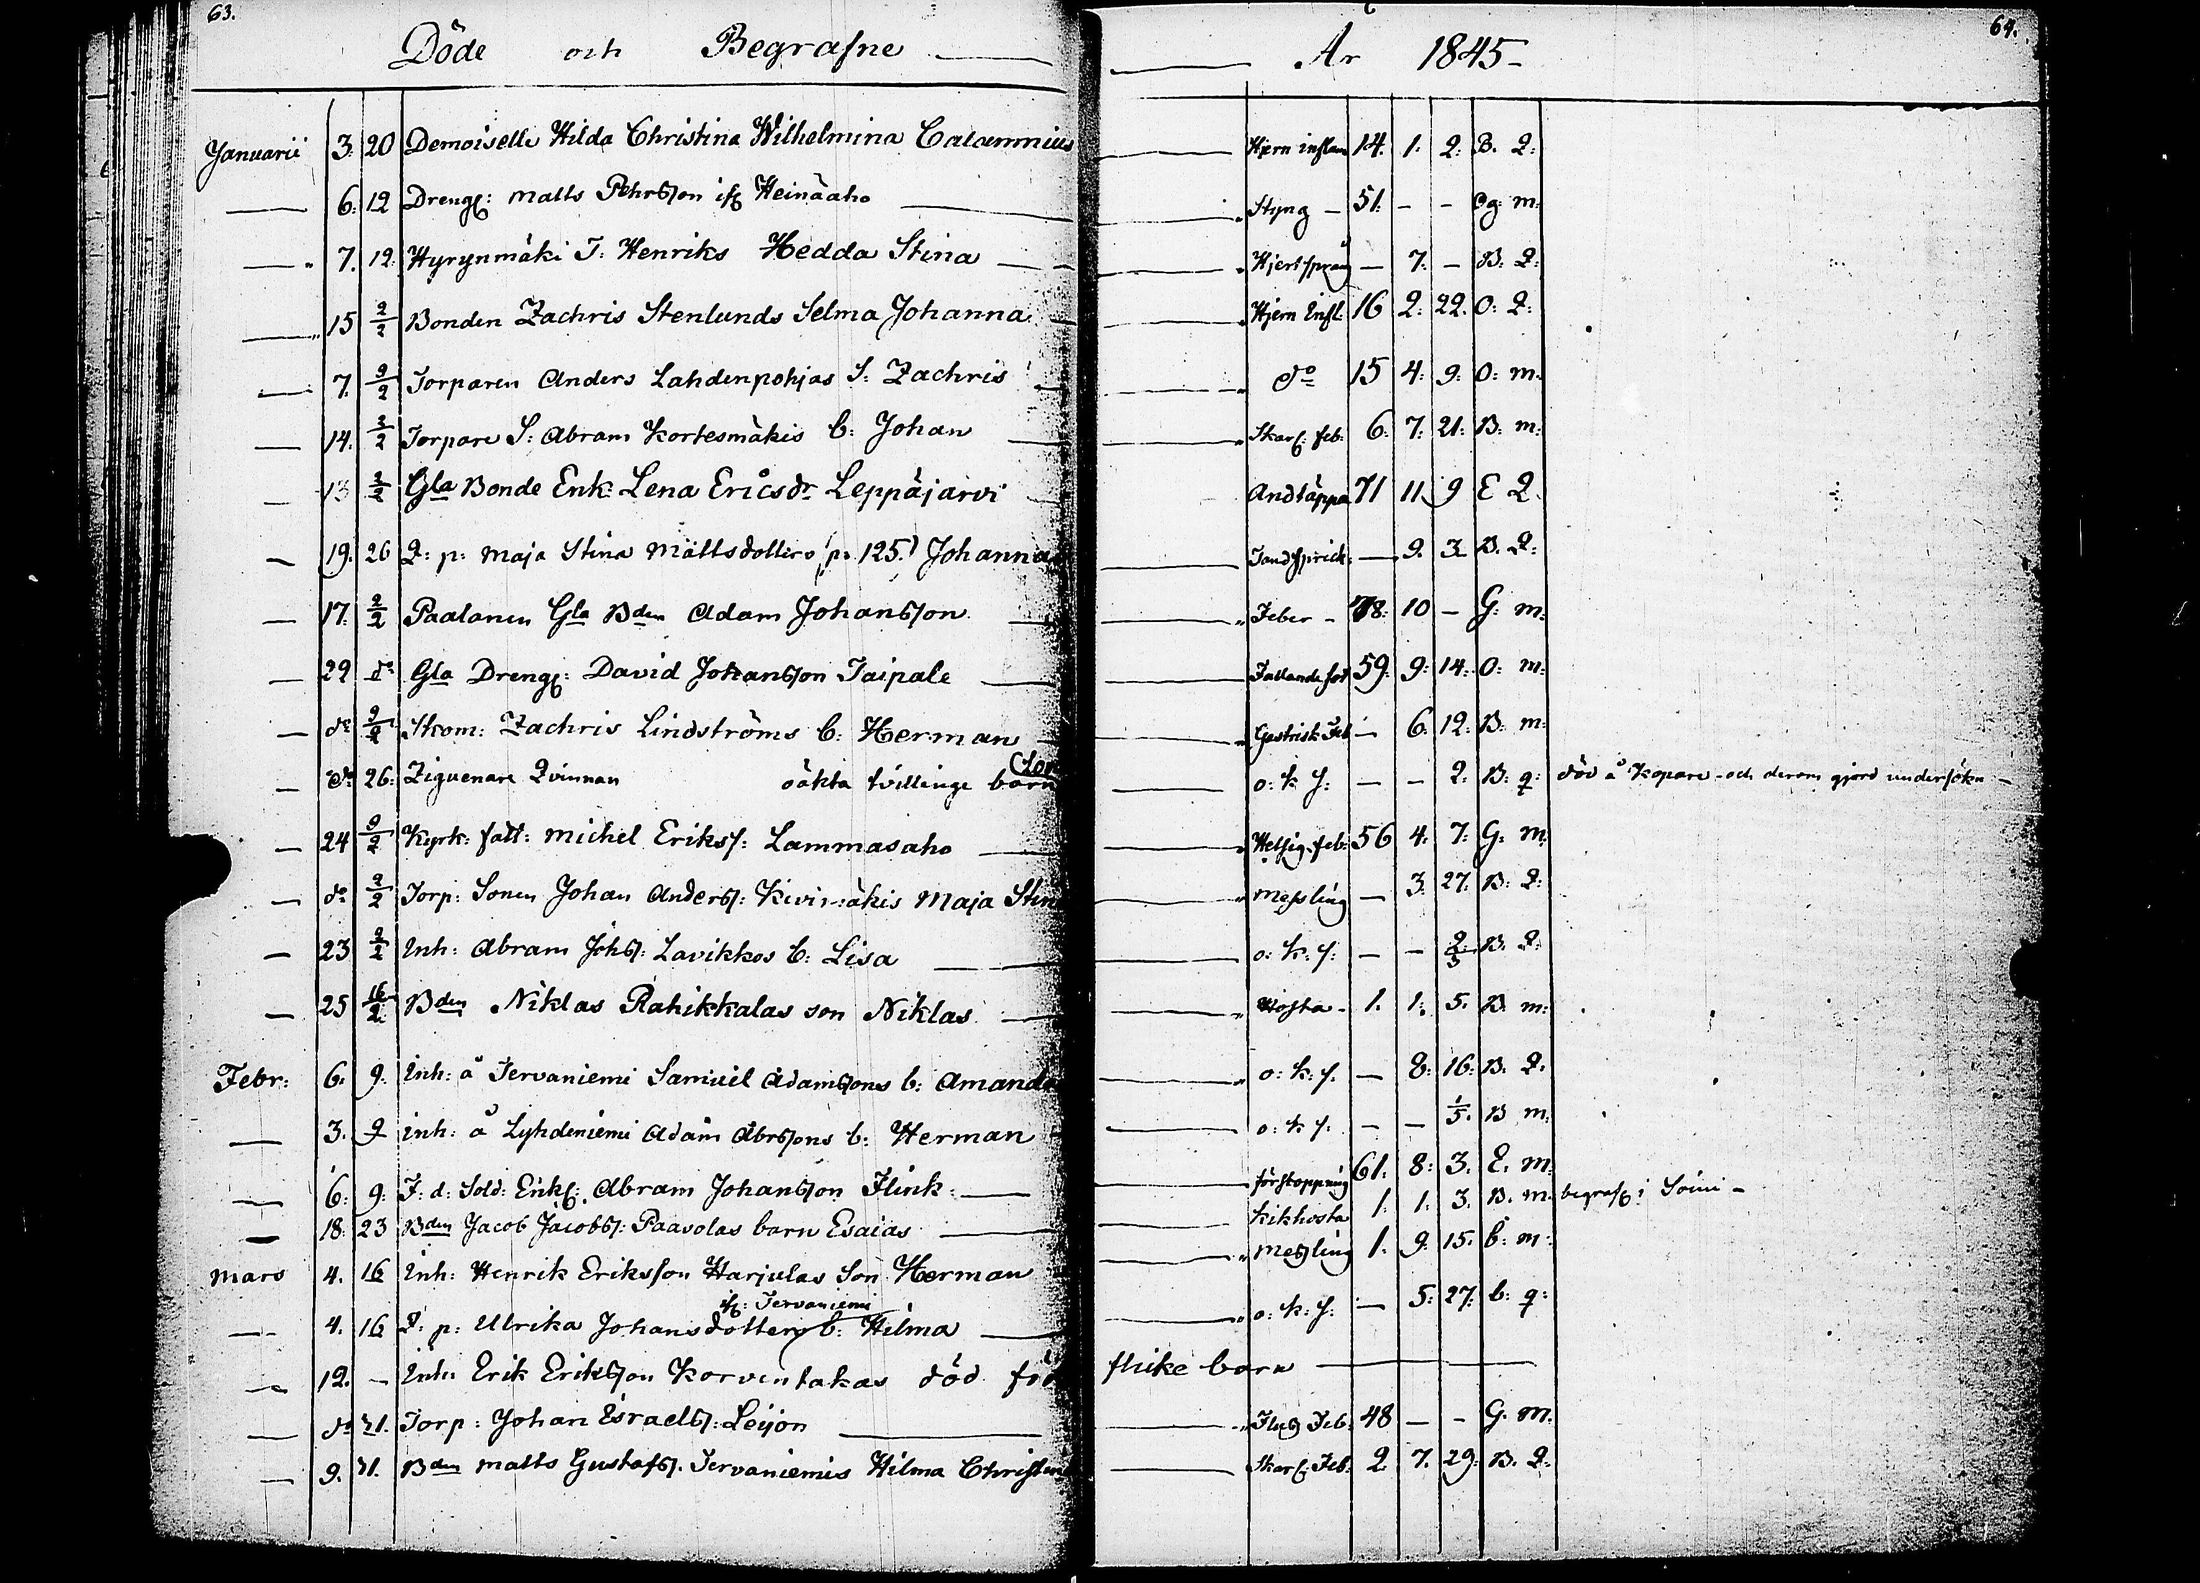 63.
64.
Döde och Begrafne År 1845
Januarii 3. 20 Demoiselle Hilda Christina Wilhelmina Calamnius Hjern inflam 14. 1. 2: B. Q:
6. 12 Dreng: Matts Pehrsson ifr Heinäaho Styng - 51. - - Og m:
7. 12: Hyrynmäki T. Henriks Hedda Stina Hjertsprång - 7: - B. Q:
15 2/2 Bonden Zachris Stenlunds Selma Johanna Hjern Infl: 16 2: 22. O: Q:
7. 2/2 Torparen Anders Lahdenpohjas S: Zachris do 15 4: 9: O: m:
14. 2/2 Torpare S: Abram Kortesmäkis b: Johan Skarl: feb: 6: 7: 21: B: m:
13 2/2 Gla Bonde Enk: Lena Ericsdr Leppäjärvi Andtäppa 71 11. 9 E Q.
19. 26 Q: p: Maja Stina Mattsdotters (p. 125.) Johanna Tandsprick: - 9. 3. B. Q:
17. 2/2 Paalanen Gla Bden Adam Johansson Feber - 78: 10 - G: m:
22 do Gla Dreng: David Johansson Taipale Fallandesot 59: 9: 14: O: m:
do 2/2 Skom: Zachris Lindströms b: Herman Gastrisk Feb - 6: 12: B: m:
do 26: Ziguenare Qvinnan oäkta tvillinge barn o: k f: - - 2: B: q: död å Kopare - och derom gjord undersökn -
24 2/2 Kyrk: fatt: Michel Eriksf: Lammasaho Hetsig feb: 56 4: 7: G: m:
do 2/2 Torp: Sonen Johan Andersf: Kivimäkis Maja Stin Messling - 3: 27: B: Q:
23 2/2 Inh: Abram Johsf: Lavikkos b: Lisa o: k: f: - - 2/3 B. Q:
25 16/2 Bden Niklas Rahikkalas son Niklas Hosta - 1. 1. 5. B m:
Febr: 6. 9: Inh: å Jervaniemi Samuel Adamssons b: Amanda o: k: f. - 8: 16: B. Q.
3. 9 inh: å Lyhdeniemi Adam Abrssons b: Herman o: k f. - - 1/5. B m:
6: 9: F: d: Sold: Enkl: Abram Johansson Flink förstoppning 61. 8: 3. E. m:
18: 23 Bden Jacob Jacobsf: Paavolas barn Esaias Kikhosta 1. 1. 3. B. m. begrafd i Soini -
Mars 4. 16 Inh: Henrik Eriksson Harjulas Son Herman Messling 1. 9. 15. b: m:
ifr: Jervaniemi
4. 16 Q: p: Ulrika Johansdotters b: Hilma o: k: f: - 5: 27: b: q:
12. - Inh: Erik Eriksson Korventakas död född flicke barn
do 31. Torp: Johan Esraelsf: Leijon Fluss Feb: 48 - - G. m.
9. 31. Bden Matts Gustafsf. Jervaniemis Hilma Christin Skarl: Feb: 2 7. 29: B. Q: